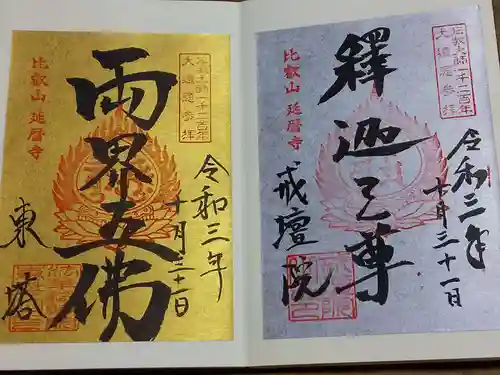 伝教大師一千二百年
大遠忌参拝
令和三年
十月三十一日
釋迦三尊
比叡山 延暦寺
戒壇院
伝教大師一千二百年
大遠忌参拝
令和三年
十月三十一日
兩界五佛
比叡山 延暦寺
東塔